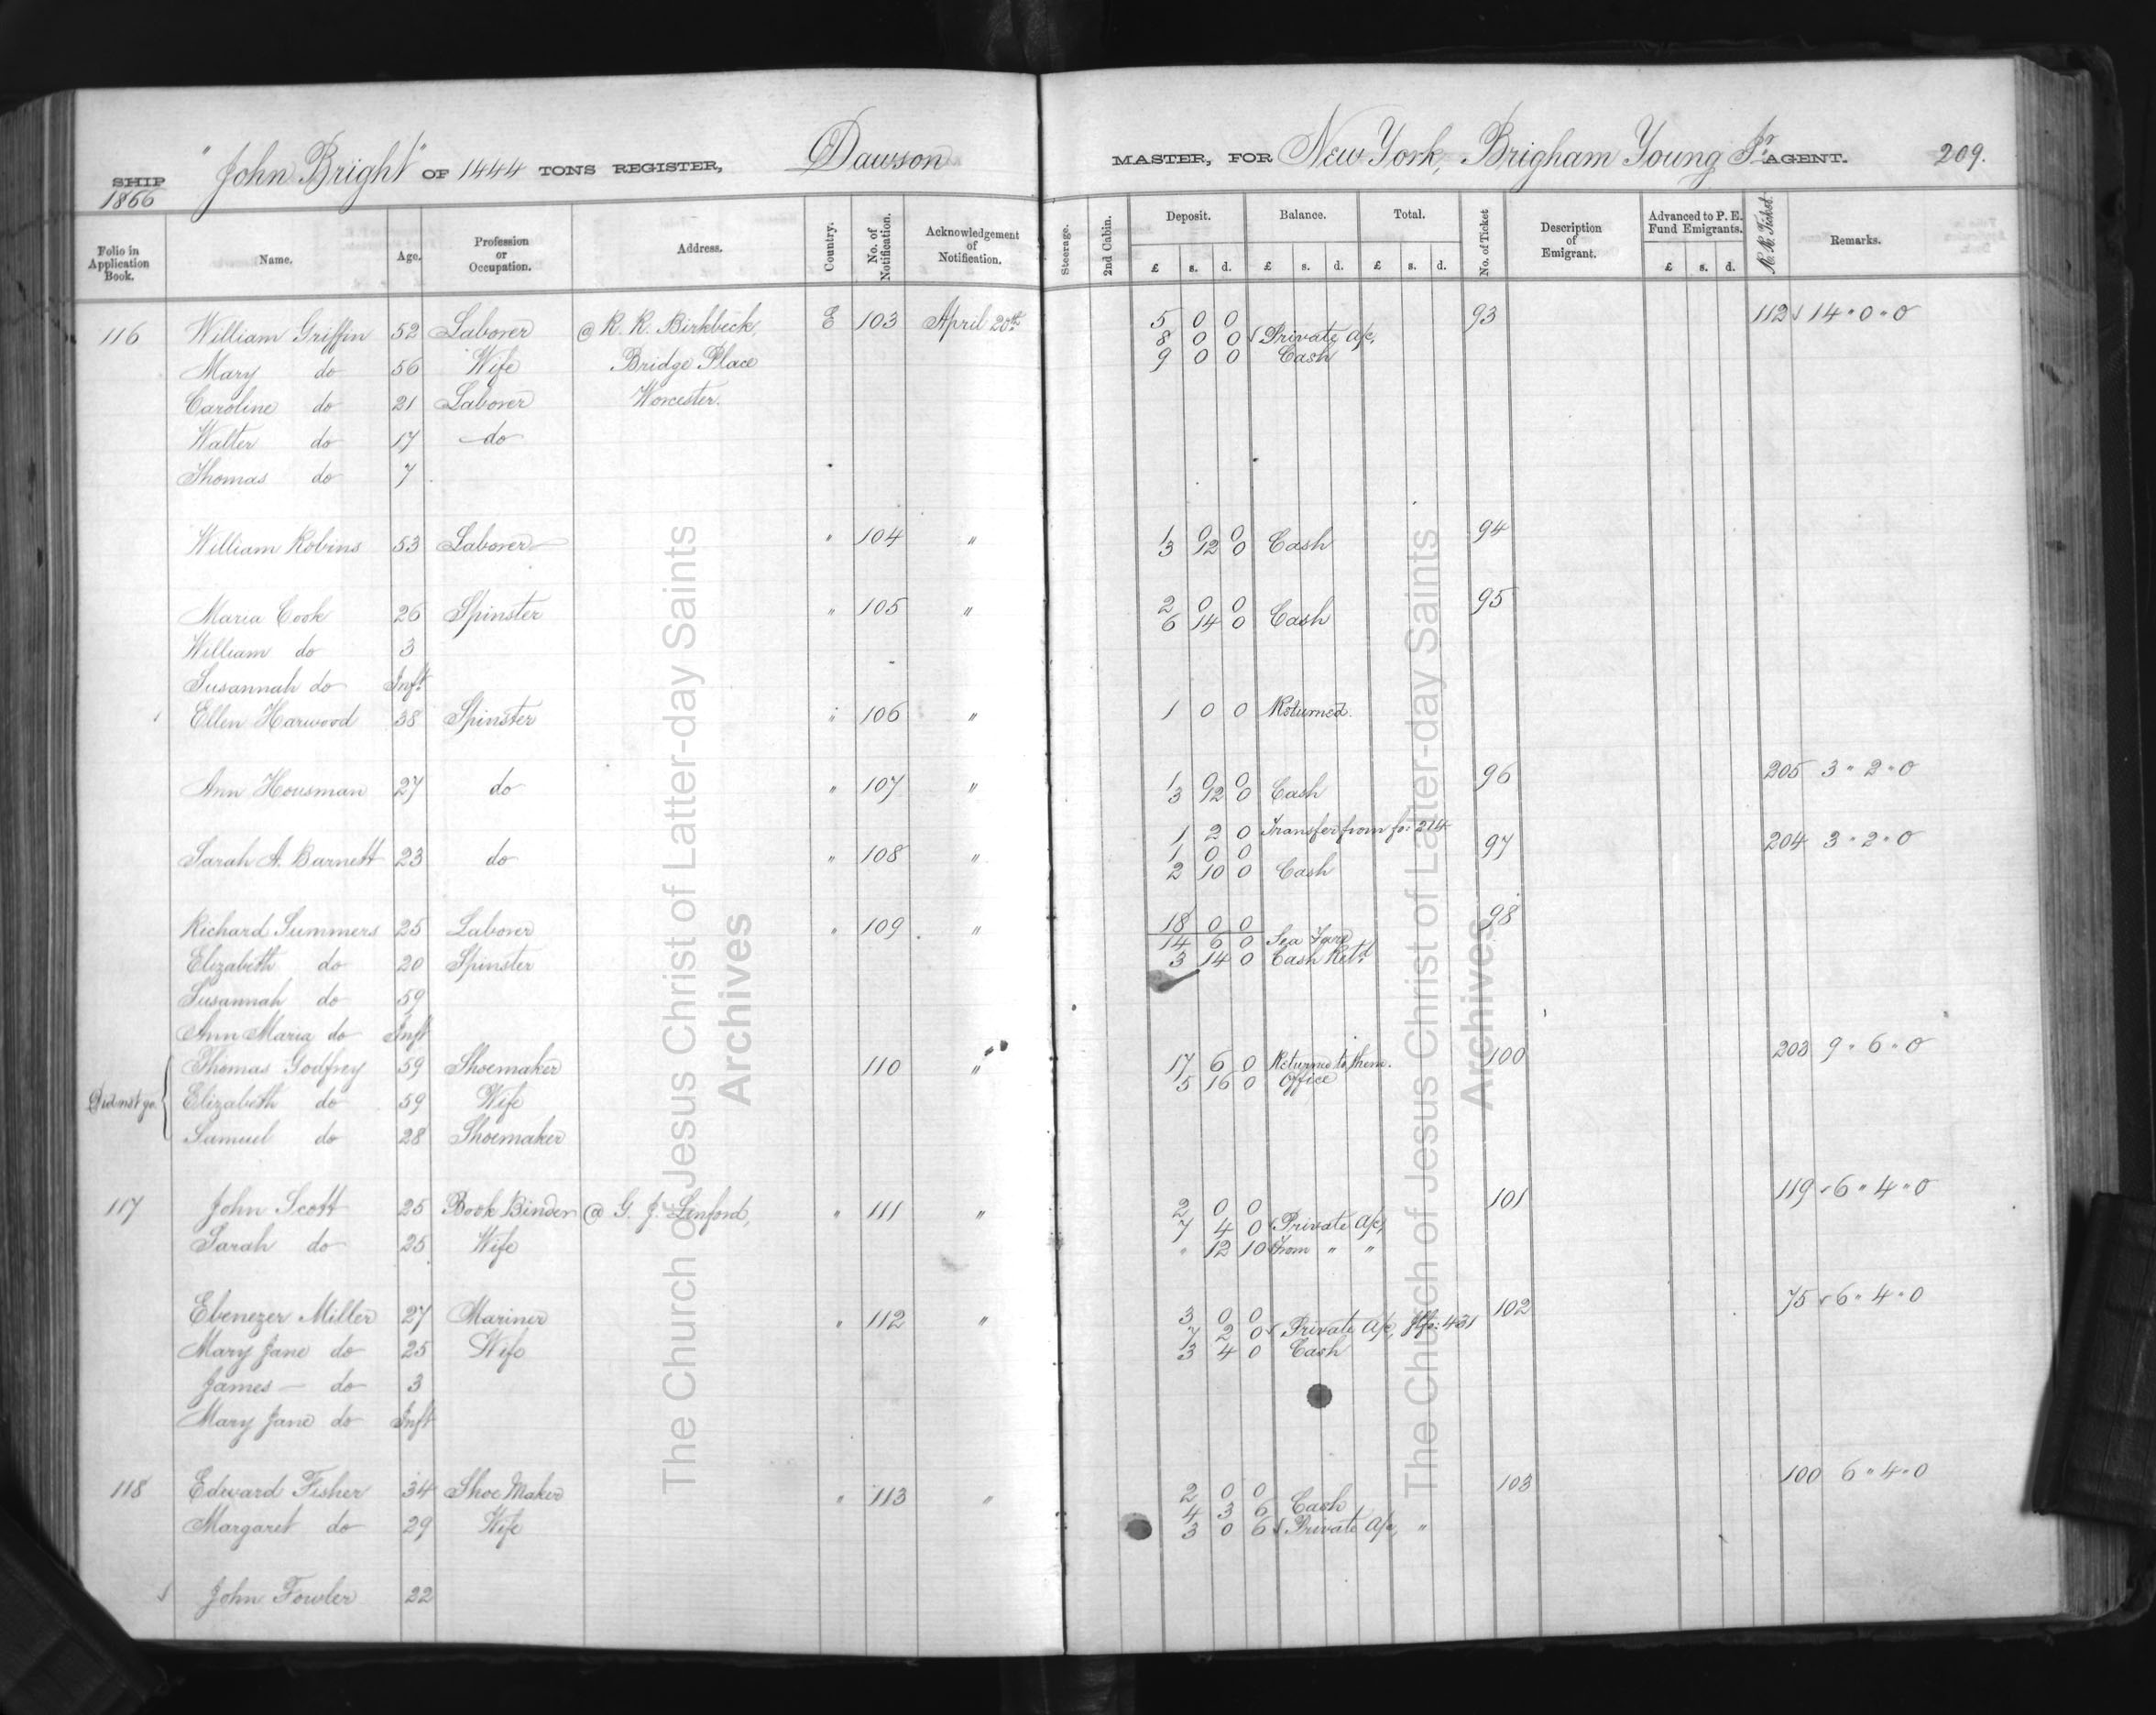 SHIP "John Bright" OF 1444 TONS REGISTER, Dawson MASTER, FOR New York, Brigham Young Jr. AGENT. 209.
1866
Folio in Application Book. Name. Age. Profession or Occupation. Address. Country. No. of Notification. Acknowledgement of Notification. Steerage. 2nd Cabin. Deposit. £ s. d. Balance. £ s. d. Total. £ s. d. No. of Ticket Description of Emigrant. Advanced to P. E. Fund Emigrants. £ s. d. R. R. Ticket. Remarks.
116 William Griffin 52 Laborer @ R. R. Birkbeck, E 103 April 20th 5 0 0 93 112 14 " 0 " 0
8 0 0 Private a/c,
Mary do 56 Wife Bridge Place 9 0 0 Cash
Caroline do 21 Laborer Worcester.
Walter do 17 do
Thomas do 7
William Robins 53 Laborer " 104 " 1 0 0 94
3 12 0 Cash
Maria Cook 26 Spinster " 105 " 2 0 0 95
6 14 0 Cash
William do 3
Susannah do Inft
Ellen Harwood 38 Spinster " 106 " 1 0 0 Returned.
Ann Housman 27 do " 107 " 1 0 0 96 205 3 " 2 " 0
3 12 0 Cash
1 2 0 Transfer from fo: 214
Sarah A. Barnett 23 do " 108 " 1 0 0 97 204 3 " 2 " 0
2 10 0 Cash
Richard Summers 25 Laborer " 109 " 18 0 0 98
14 6 0 Sea Fare
Elizabeth do 20 Spinster 3 14 0 Cash Retd
Susannah do 59
Ann Maria do Inft
Thomas Godfrey 59 Shoemaker 110 " 17 6 0 Returned to them. 100 203 9 " 6 " 0
5 16 0 Office
Did not go. Elizabeth do 59 Wife
Samuel do 28 Shoemaker
117 John Scott 25 Book Binder @ G. J. Linford, " 111 " 2 0 0 101 119 6 " 4 " 0
7 4 0 Private a/c,
Sarah do 25 Wife " 12 10 from " "
Ebenezer Miller 27 Mariner " 112 " 3 0 0 102 75 6 " 4 " 0
7 2 0 Private a/c, fo: 431
Mary Jane do 25 Wife 3 4 0 Cash
James do 3
Mary Jane do Inft
118 Edward Fisher 34 Shoe Maker " 113 " 2 0 0 103 100 6 " 4 " 0
4 3 6 Cash
Margaret do 29 Wife 3 0 6 Private a/c, "
John Fowler 22
The Church of Jesus Christ of Latter-day Saints
Archives
The Church of Jesus Christ of Latter-day Saints
Archives